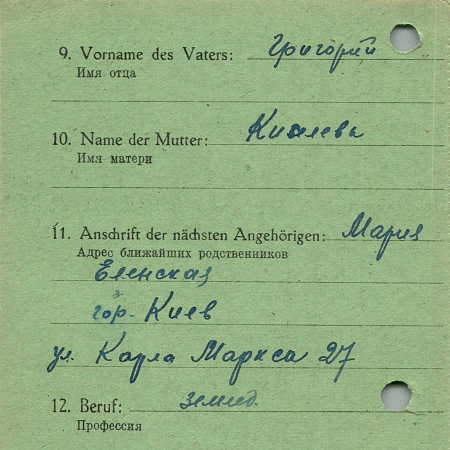 9. Vorname des Vaters: Григорий
Имя отца
10. Name der Mutter: Киселева
Имя матери
11. Anschrift der nächsten Angehörigen: Мария
Адрес ближайших родственников
Еленская
гор. Киев
ул. Карла Маркса 27
12. Beruf: землед.
Профессия